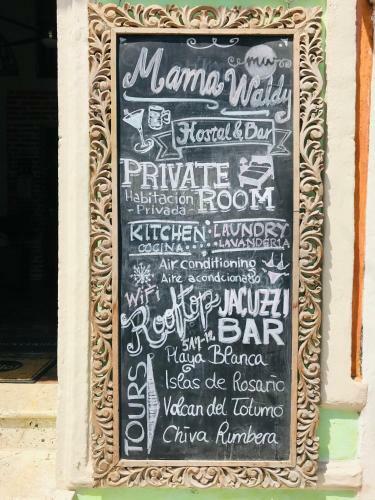 Mama Waldy
Hostel & Bar
PRIVATE ROOM
Habitación
- Privada -
KITCHEN : LAUNDRY
COCINA : LAVANDERIA
Air conditioning
Aire acondicionado
WiFi
Rooftop JACUZZI
BAR
TOURS
Playa Blanca
Islas de Rosario
Volcan del Totumo
Chiva Rumbera